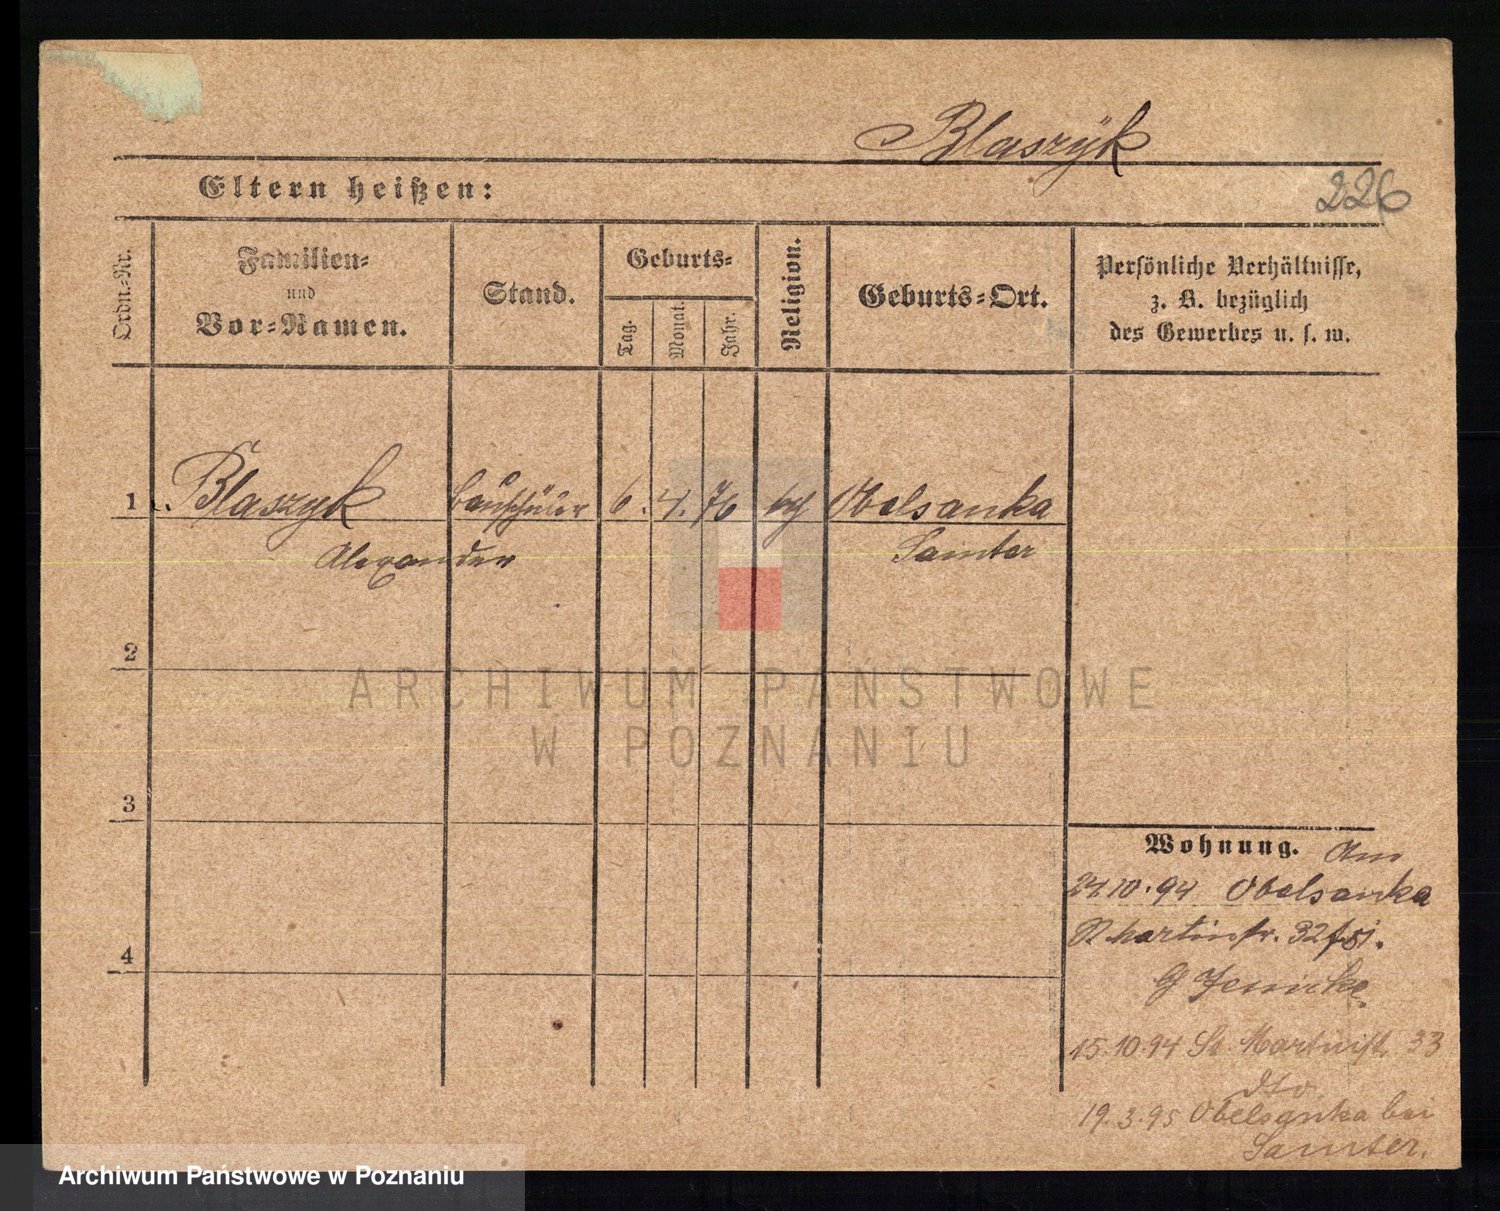 Blaszÿk
Eltern heißen:
226
Ordn.-Nr.
Familien-
und
Vor-Namen.
Stand.
Geburts-
Tag.
Monat.
Jahr.
Religion.
Geburts-Ort.
Persönliche Verhältnisse,
z. B. bezüglich
des Gewerbes u. s. w.
1 Blaszyk Bauschüler 6. 4. 76 kg Obelsanka
Alexander Samter
2
ARCHIWUM PAŃSTWOWE
W POZNANIU
3
Wohnung. Am
10.94 Obelsanka
Martinstr. 32
Jenicke
15.10.94 St. Martinstr. 33
dto
19.3.95 Obelsanka bei
Samter.
4
Archiwum Państwowe w Poznaniu